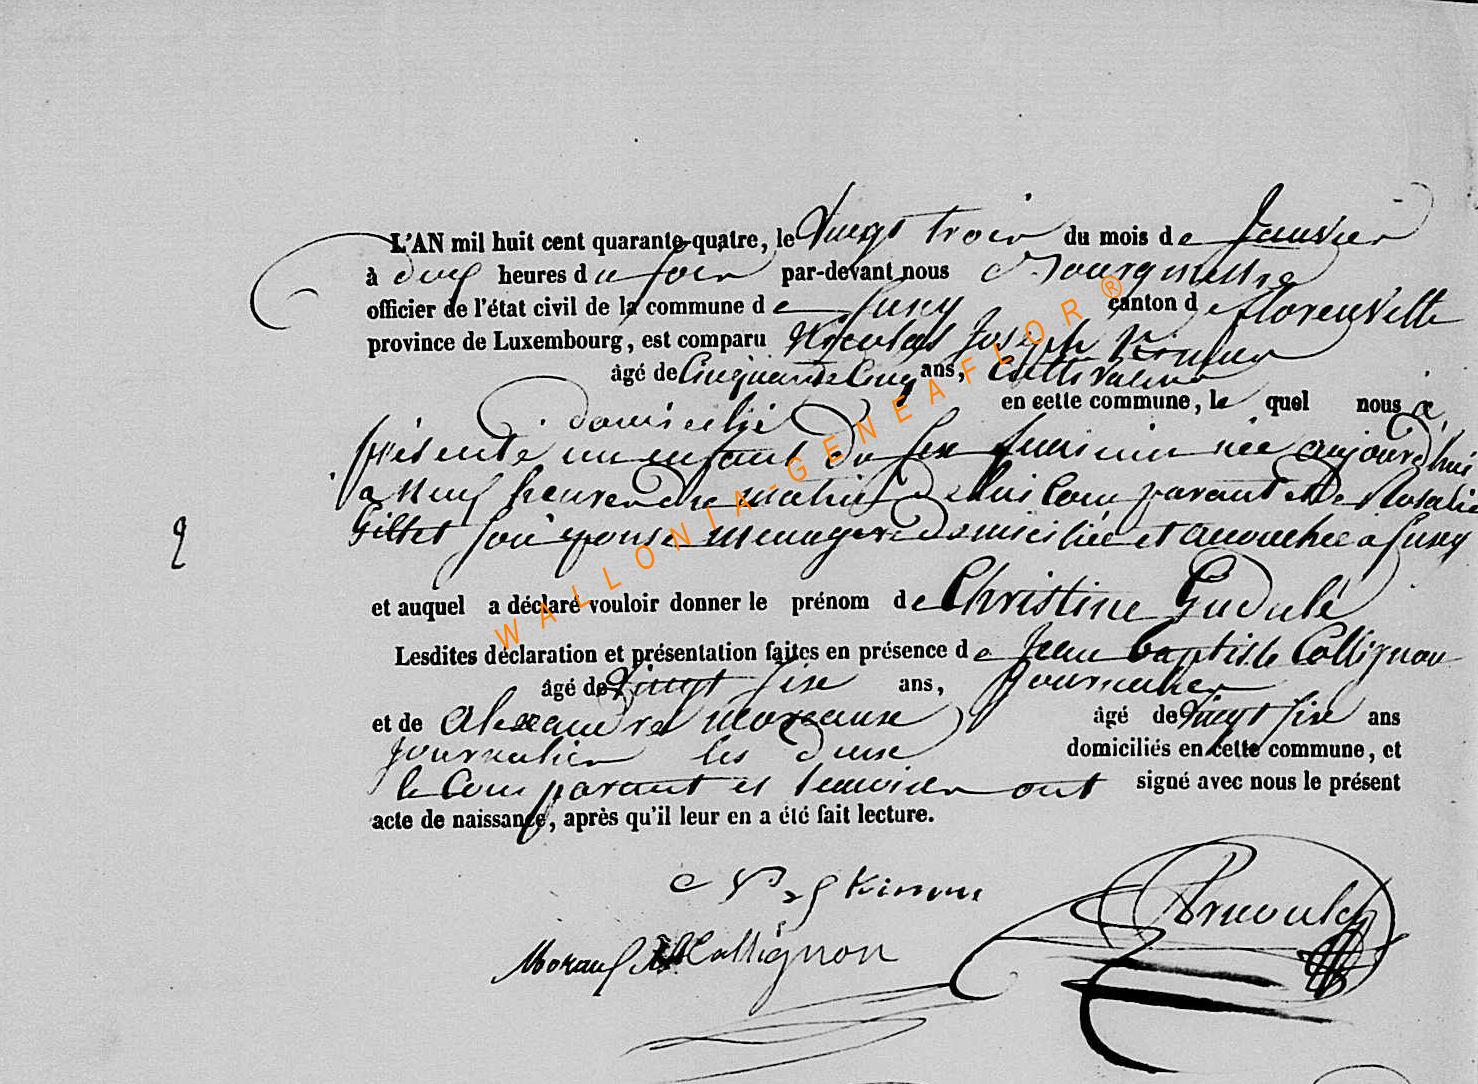 L'AN mil huit cent quarante-quatre, le Vingt trois du mois de Janvier
à deux heures du soir par-devant nous Bourgmestre
officier de l'état civil de la commune de Suxy canton de florenville
province de Luxembourg, est comparu Nicolas Joseph
âgé de Cinquante Cinq ans, Cultivateur
domicilié en cette commune, le quel nous a
présenté un enfant du sexe feminin née aujourd'hui
a Neuf heures du matin de lui Comparant et de Rosalie
Gillet son épouse menagere domiciliée et accouchée a Suxy
2
et auquel a déclaré vouloir donner le prénom de Christine Gudule
Lesdites déclaration et présentation faites en présence de Jean baptiste Collignon
âgé de Vingt six ans, Journalier
et de alexandre moreaux âgé de Vingt six ans
Journalier les deux domiciliés en cette commune, et
le Comparant et temoins ont signé avec nous le présent
acte de naissance, après qu'il leur en a été fait lecture.
Collignon
WALLONIA-GENEAFLOR ®